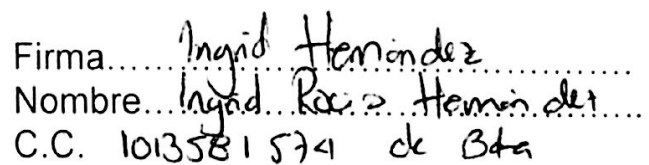 Firma...... Ingrid Hernández
Nombre... Ingrid Rocio Hernández
C.C. 1013581574 de Bta